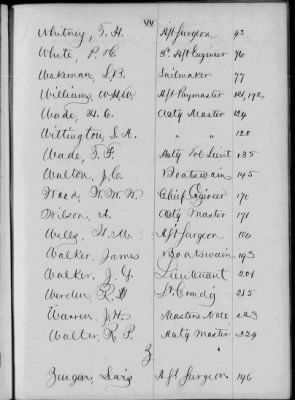 W
Whitney, T. H. Ast Surgeon 45
White, P. H. 3d Ast Engineer 76
Wakeman, S.B. Sailmaker 77
Williams, W.H.W. Ast Paymaster 121, 192
Wade, H. C. Actg Master 124
Wittington, S. A. " " 128
Wade, T. F. Actg Vol Lieut 135
Walton, J. C. Boatswain 145
Wood, W. W. W. Chief Engineer 170
Wilson, A. Actg Master 171
Wells, H. M. Ast Surgeon 180
Walker, James Boatswain 193
Walker, J. G. Lieutenant 201
Werden, R. Lt. Comdg 215
Warren, J.H. Masters Mate 223
Walter, R. P. Actg Master 224
Z
Zenger, Lewis Ast Surgeon 196